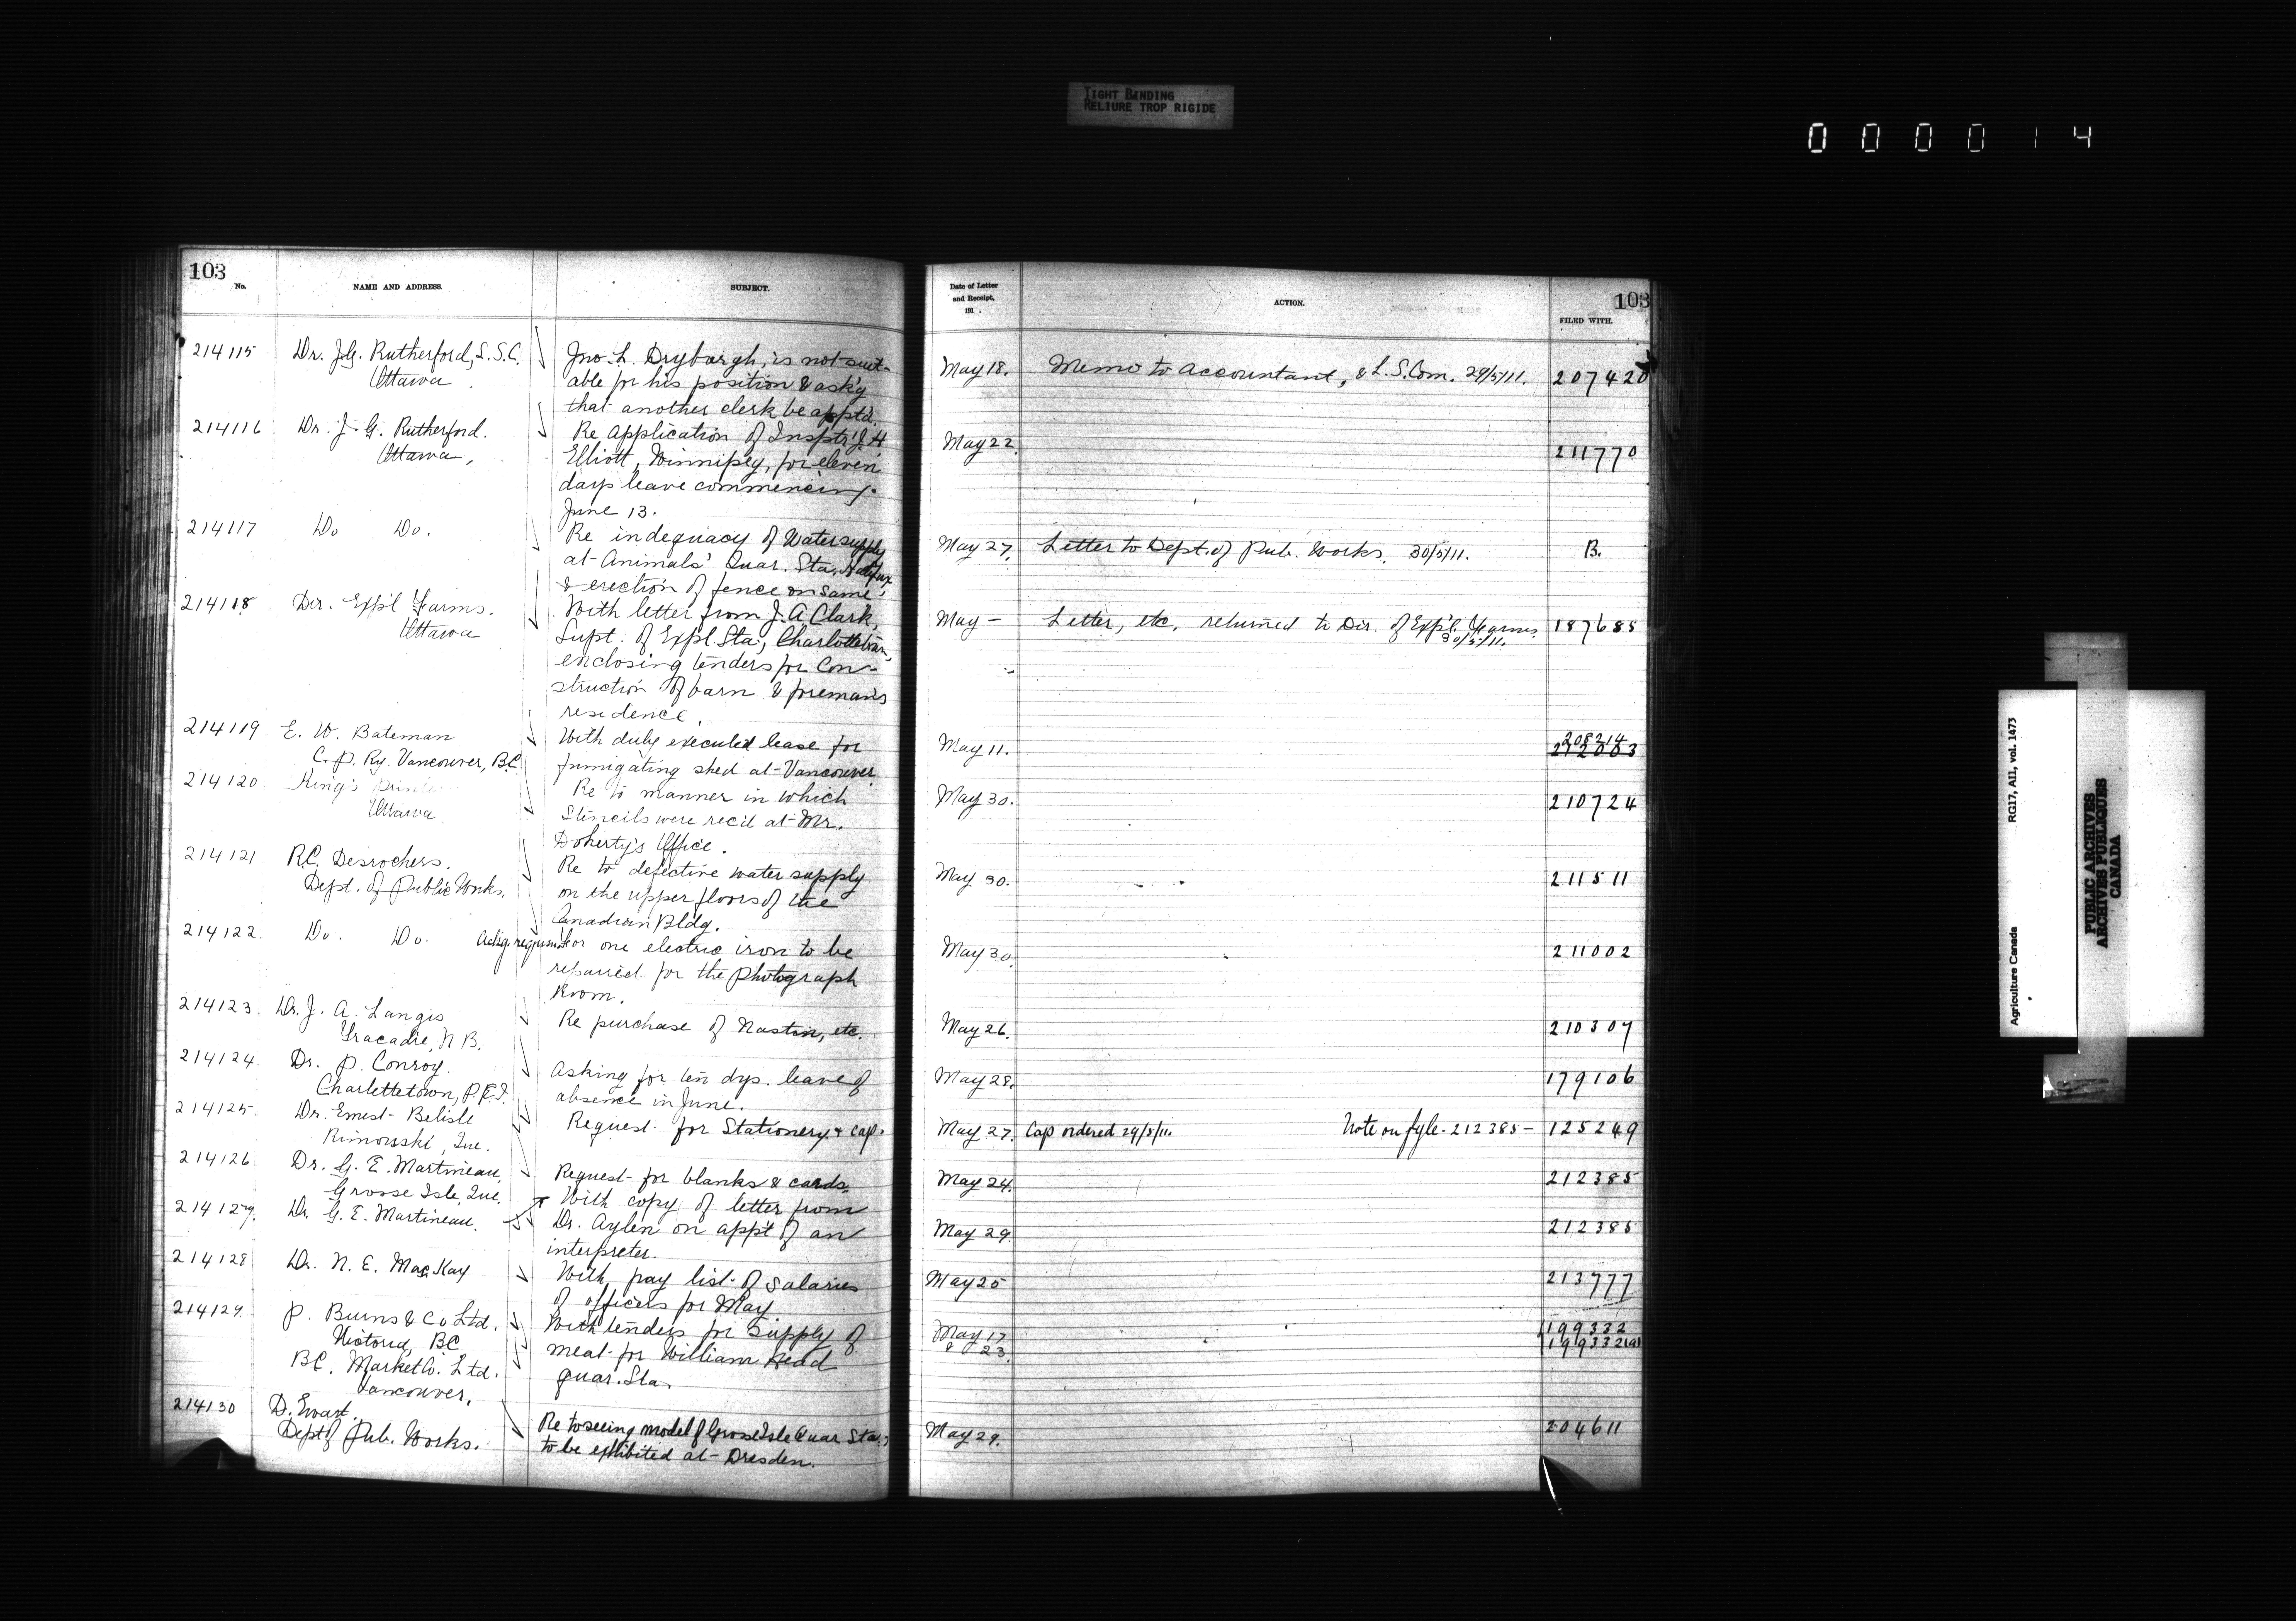 TIGHT BINDING
RELIURE TROP RIGIDE
000014
103
No.
NAME AND ADDRESS.
SUBJECT.
214115 Dr. J.G. Rutherford, L.S.C.
Ottawa
Jno. L. Dryburgh, is not suit-
able for his position & ask'g
that another clerk be appt'd.
214116 Dr. J. G. Rutherford.
Ottawa,
Re application of Insptr J. H
Elliott, Winnipeg, for eleven
days leave commencing
June 13.
214117 Do Do.
Re indequacy of Water supply
at Animals' Quar. Sta. Halifax
& erection of fence on same.
214118 Dir. Exp'l Farms.
Ottawa
With letter from J. A Clark,
Supt. of Exp'l Sta., Charlottetown,
enclosing tenders for Con-
struction of barn & foreman's
residence.
214119 E. W. Bateman
C. P. Ry. Vancouver, B.C.
With duly executed lease for
fumigating shed at Vancouver.
214120 King's
Ottawa.
Re to manner in which
Stencils were rec'd at Mr.
Doherty's Office.
214121 R.C. Desrochers.
Dept. of Public Works.
Re to defective water supply
on the upper floors of the
Canadian Bldg.
214122 Do. Do.
for one electric iron to be
repaired for the Photograph
Room.
214123 Dr. J. A. Langis
Tracadie, N.B.
Re purchase of Nastin, etc.
214124 Dr. P. Conroy.
Charlettetown, P.E.I.
Asking for ten dys. leave of
absence in June.
214125 Dr. Ernest Belisle
Rimouski, Que.
Request for Stationery & Cap.
214126 Dr. G. E. Martineau,
Grosse Isle, Que.
Request for blanks & cards.
214127. Dr. G. E. Martineau.
With copy of letter from
Dr. Aylen on app't of an
interpreter.
214128 Dr. N. E. MacKay
With pay list of salaries
of officers for May.
214129 P. Burns & Co Ltd.
Victoria, BC
B.C. Market Co. Ltd.
Vancouver.
With tenders for supply of
meat for William Head
quar. Sta.
214130 D. Ewart.
Dept of Pub. Works.
Re to seeing model of Grosse Isle Quar Sta.,
to be exhibited at Dresden.
Date of Letter
and Receipt,
191 .
ACTION.
103
FILED WITH.
May 18. Memo to Accountant, & L.S. Com. 29/5/11. 207420
May 22 211770
May 27. Letter to Dept. of Pub. Works. 30/5/11. B.
May – Letter, etc, returned to Dir. of Exp'l. Farms 187685
30/5/11.
208214
May 11.
May 30. 210724
May 30. 211511
May 30. 211002
May 26. 210307
May 28. 179106
May 27. Cap ordered 29/5/11. Note on fyle - 212385 - 125249
May 24. 212385
May 29 212385
May 25 213777
May 17 199332
& 23. 199332(a)
May 29. 204611
Agriculture Canada RG17, A11, vol. 1473
PUBLIC ARCHIVES
ARCHIVES PUBLIQUES
CANADA